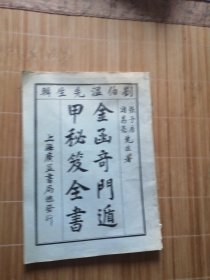 劉伯溫先生輯
張子房
諸葛亮
先生著
金函奇門遁
甲秘笈全書
上海廣益書局總發行